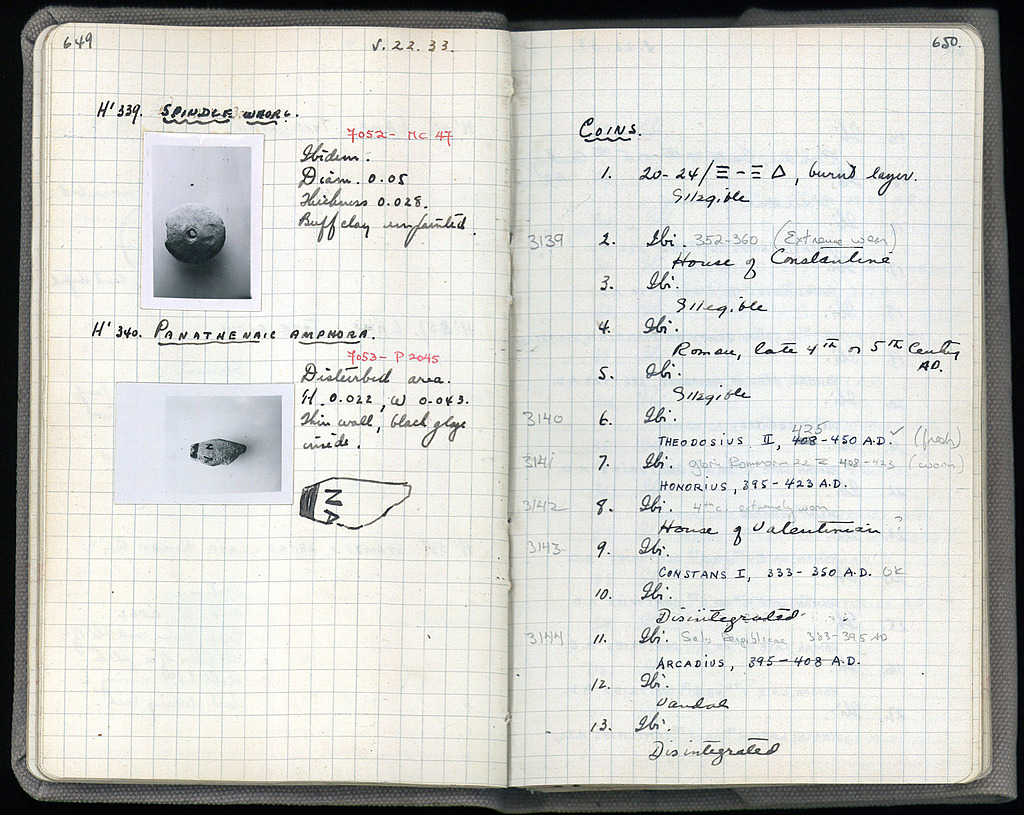 649
V. 22. 33.
H' 339. SPINDLE WHORL.
7052 - MC 47
Ibidem.
Diam. 0.05
Thickness 0.028.
Buff clay unpainted.
H' 340. PANATHENAIC AMPHORA.
7053 - P 2045
Disturbed area.
H. 0.022, W 0.043.
Thin wall, black glaze
inside.
N
A
650.
COINS.
1. 20-24/Ξ-Ξ Δ, burnt layer.
Illegible
3139 2. Ibi. 352-360 (Extreme wear)
House of Constantine
3. Ibi.
Illegible
4. Ibi.
Roman, late 4th or 5th Century
AD.
5. Ibi.
Illegible
3140 6. Ibi.
425
THEODOSIUS II, 408-450 A.D. ✓ (fresh)
3141 7. Ibi. gloria Romanorum 22 = 408-423 (worn)
HONORIUS, 395-423 A.D.
3142 8. Ibi. 4th c. extremely worn
House of Valentinian ?
3143 9. Ibi.
CONSTANS I, 333-350 A.D. OK
10. Ibi.
Disintegrated
3144 11. Ibi. Salus Reipublicae 383-395 AD
ARCADIUS, 395-408 A.D.
12. Ibi.
Vandal
13. Ibi.
Disintegrated